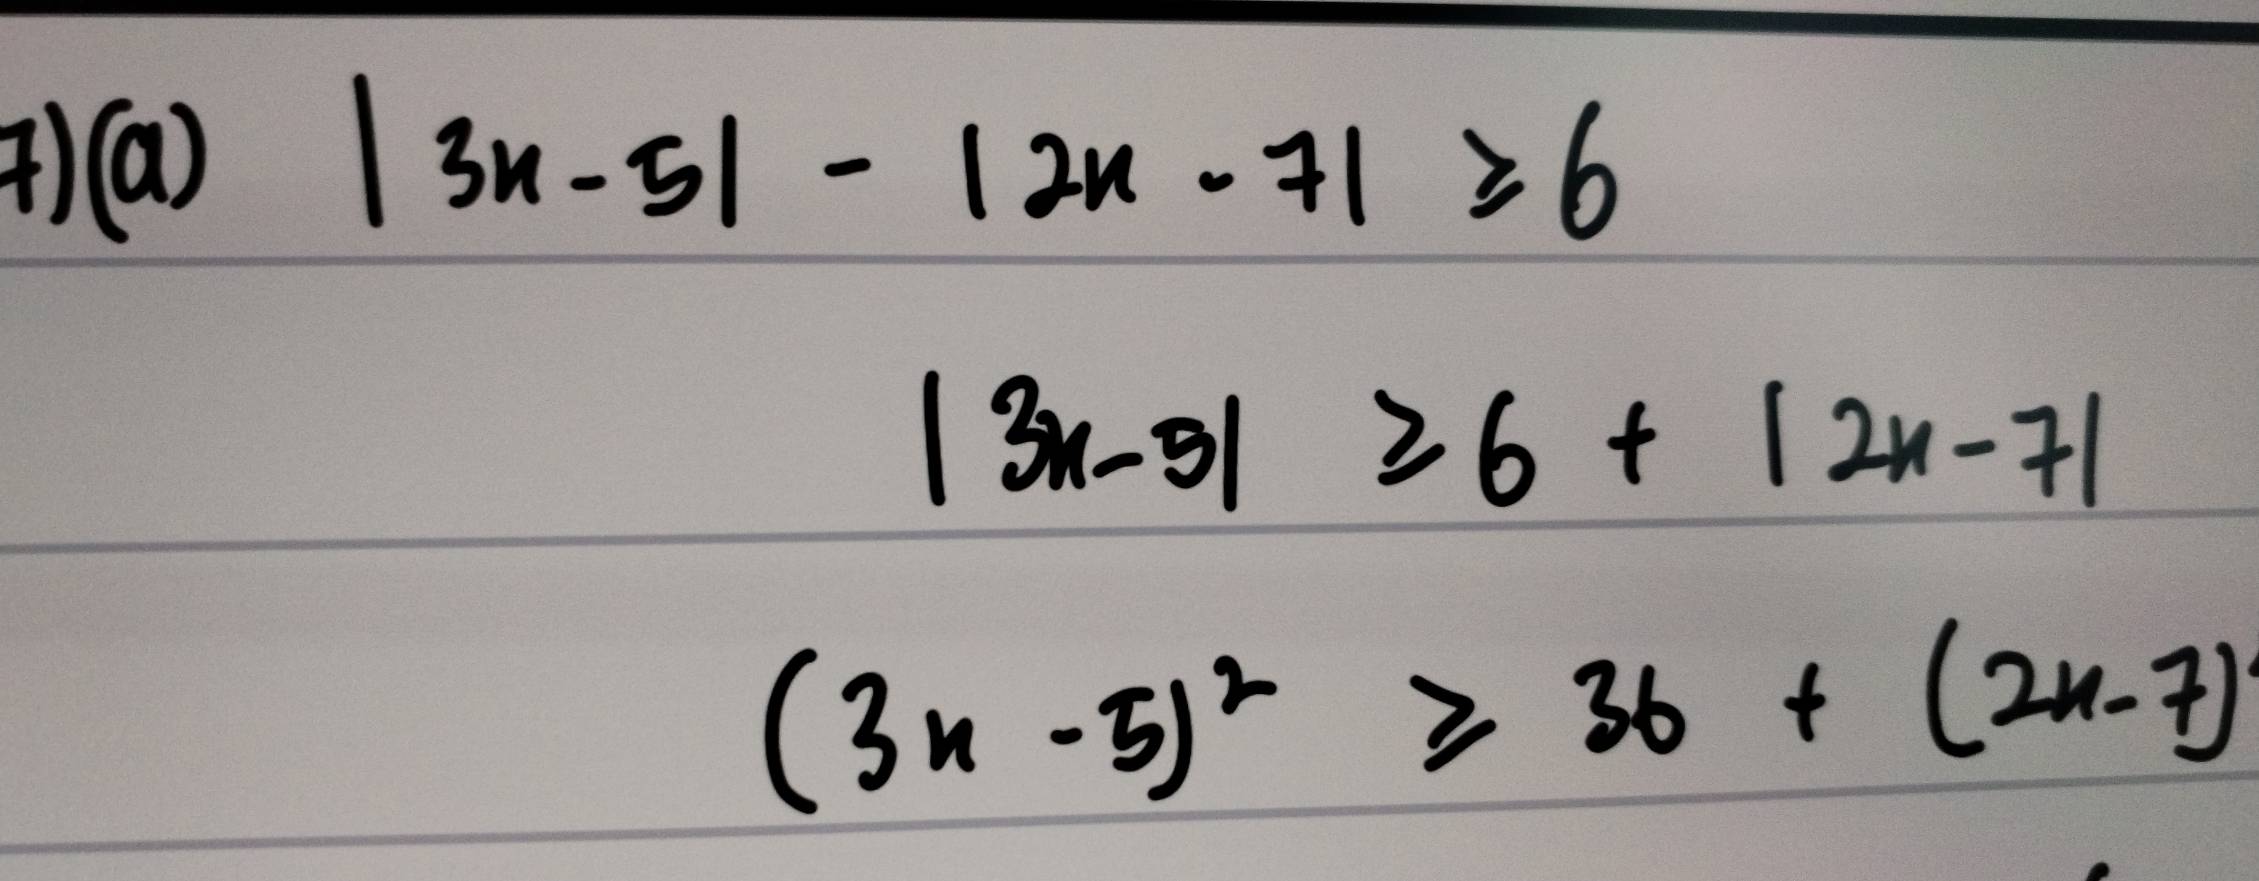 7)(a) |3x-5| - |2x-7| ≥ 6
|3x-5| ≥ 6 + |2x-7|
(3x-5)² ≥ 36 + (2x-7)²